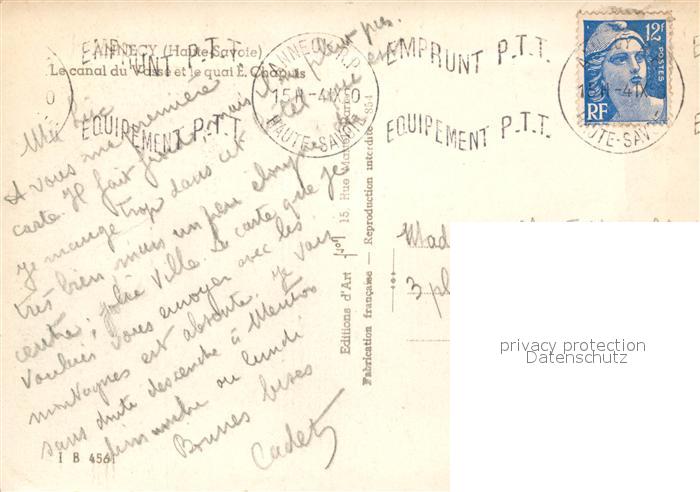 ANNECY (Haute-Savoie)
Le canal du Vassé et le quai E. Chapuis
EMPRUNT P.T.T.
EQUIPEMENT P.T.T.
ANNECY R.P.
15H -4IX 0
HAUTE-SAVOIE
EMPRUNT P.T.T.
EQUIPEMENT P.T.T.
12F
POSTES
RF
pleut pas.
A vous ma première
carte. Il fait froid mais il ne
Je mange trop dans cet
très bien mais un peu
centre, jolie ville. La carte que je
voulais vous envoyer avec les
montagnes est absente. Je vais
sans doute descendre à Menton
dimanche ou lundi
Bonnes bises
Cadet
I B 456
Editions d'Art
15, Rue
Fabrication française — Reproduction interdite 854
Mad
3 pl
privacy protection
Datenschutz